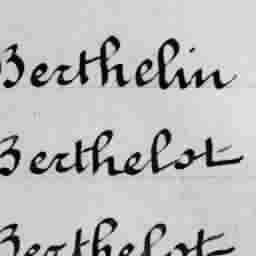 Berthelin
Berthelot
Berthelot